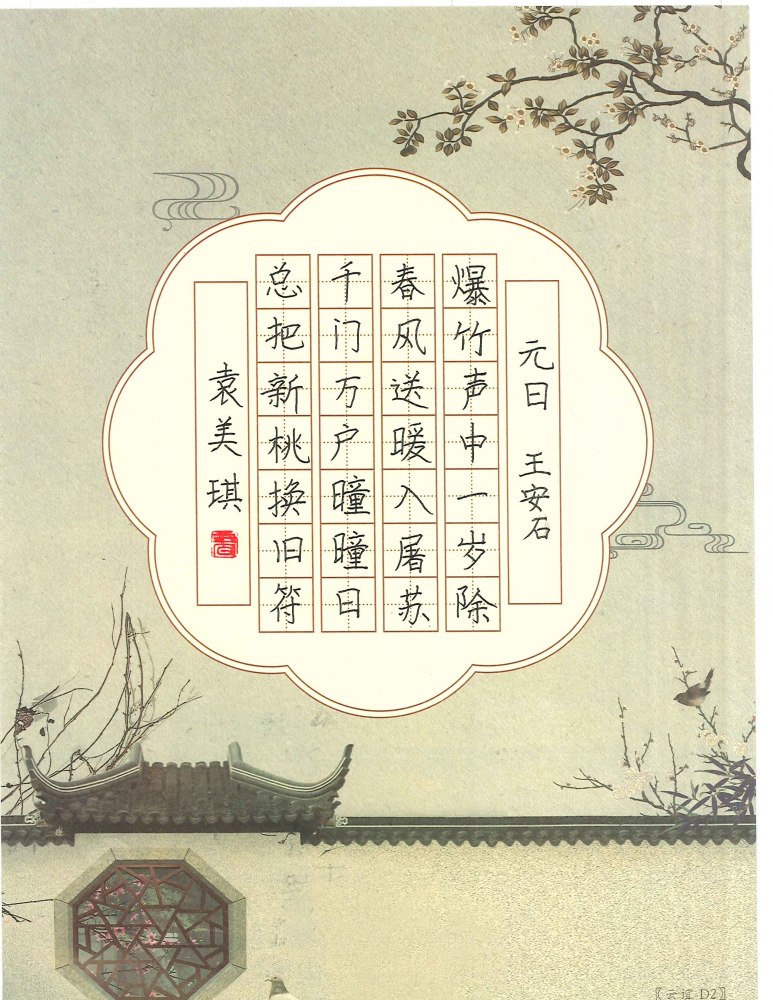 元日 王安石
爆竹声中一岁除
春风送暖入屠苏
千门万户曈曈日
总把新桃换旧符
袁美琪
〖云谊 D2〗